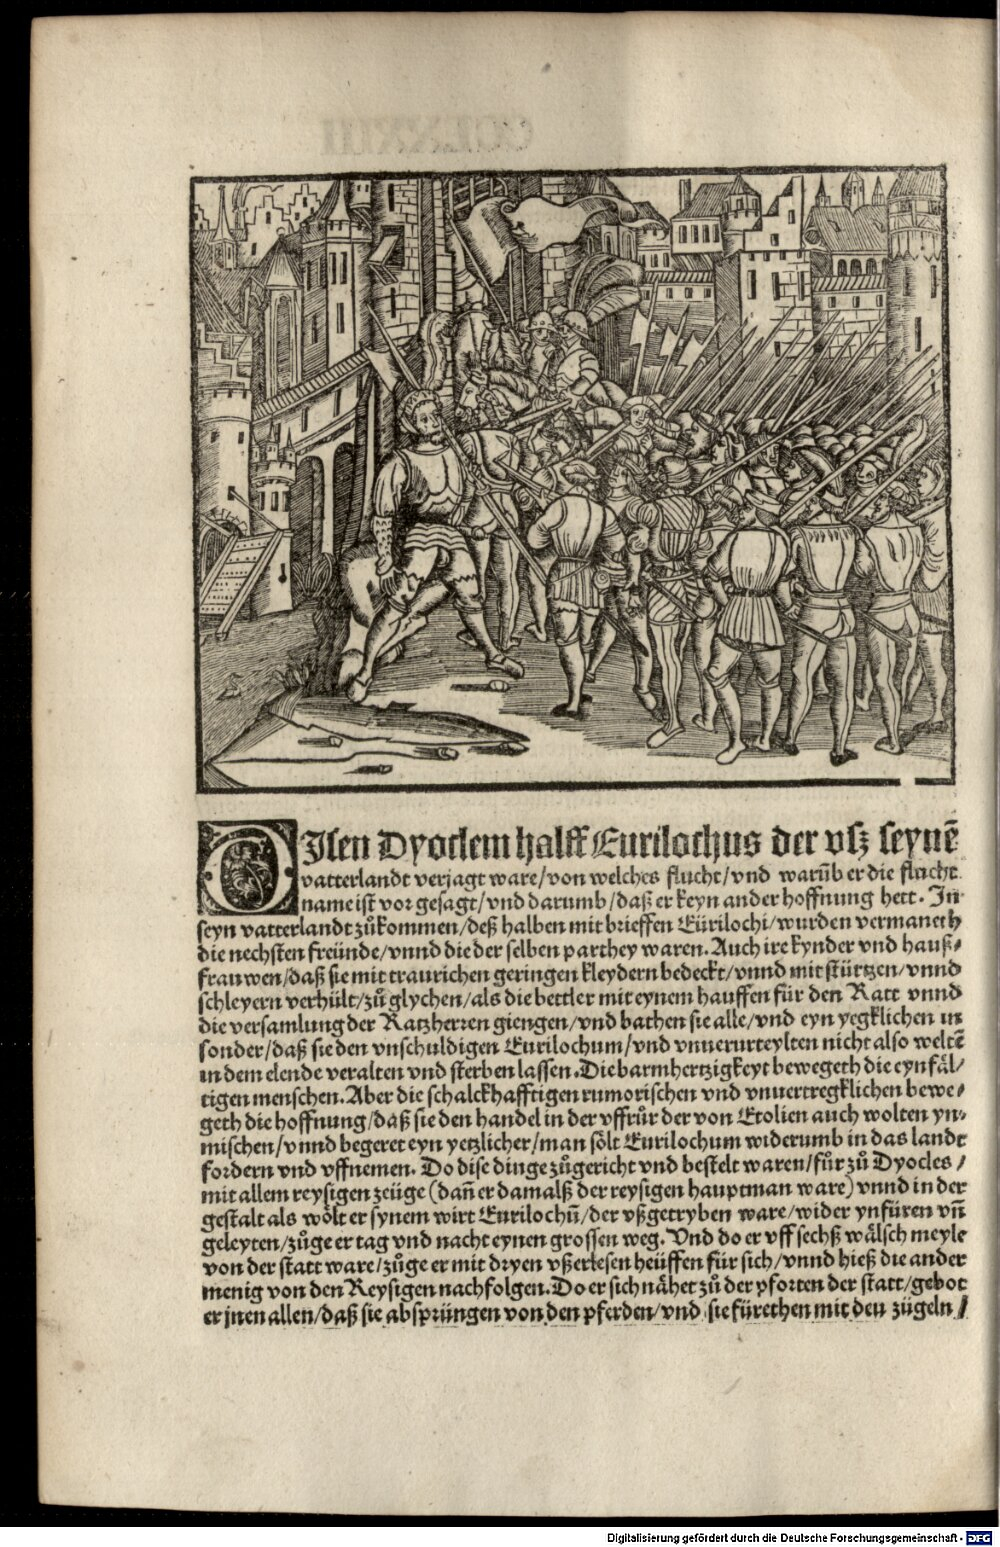 DIsen Dyoclem halff Eurilochus der vsz seynē
vatterlandt verjagt ware/von welches flucht/vnd warūb er die flucht
name ist vor gesagt/vnd darumb/daß er keyn ander hoffnung hett. In
seyn vatterlandt zůkommen/deß halben mit brieffen Eürilochi/wurden vermaneth
die nechsten freünde/vnnd die der selben parthey waren. Auch ire kynder vnd hauß⸗
frauwen/daß sie mit traurichen geringen kleydern bedeckt/vnnd mit stürtzen/vnnd
schleyern verhült/zů glychen/als die bettler mit eynem hauffen für den Ratt vnnd
die versamlung der Ratzherren giengen/vnd bathen sie alle/vnd eyn yegklichen in
sonder/daß sie den vnschuldigen Eurilochum/vnd vnuerurteylten nicht also weltē
in dem elende veralten vnd sterben lassen. Die barmhertzigkeyt bewegeth die eynfäl/
tigen menschen. Aber die schalckhafftigen rumorischen vnd vnuertregklichen bewe⸗
geth die hoffnung/daß sie den handel in der vffrůr der von Etolien auch wolten yn⸗
mischen/vnnd begeret eyn yetzlicher/man sölt Eurilochum widerumb in das landt
fordern vnd vffnemen. Do dise dinge zůgericht vnd bestelt waren/fůr zů Dyocles/
mit allem reysigen zeüge (dañ er damalß der reysigen hauptman ware) vnnd in der
gestalt als wölt er synem wirt Eurilochū/der vßgetryben ware/wider ynfüren vñ
geleyten/zůge er tag vnd nacht eynen grossen weg. Vnd do er vff sechß wälsch meyle
von der statt ware/zůge er mit dryen vßerlesen heüffen für sich/vnnd hieß die ander
menig von den Reysigen nachfolgen. Do er sich nähet zů der pforten der statt/gebot
er jnen allen/daß sie absprüngen von den pferden/vnd sie fürethen mit den zügeln/
Digitalisierung gefördert durch die Deutsche Forschungsgemeinschaft - DFG